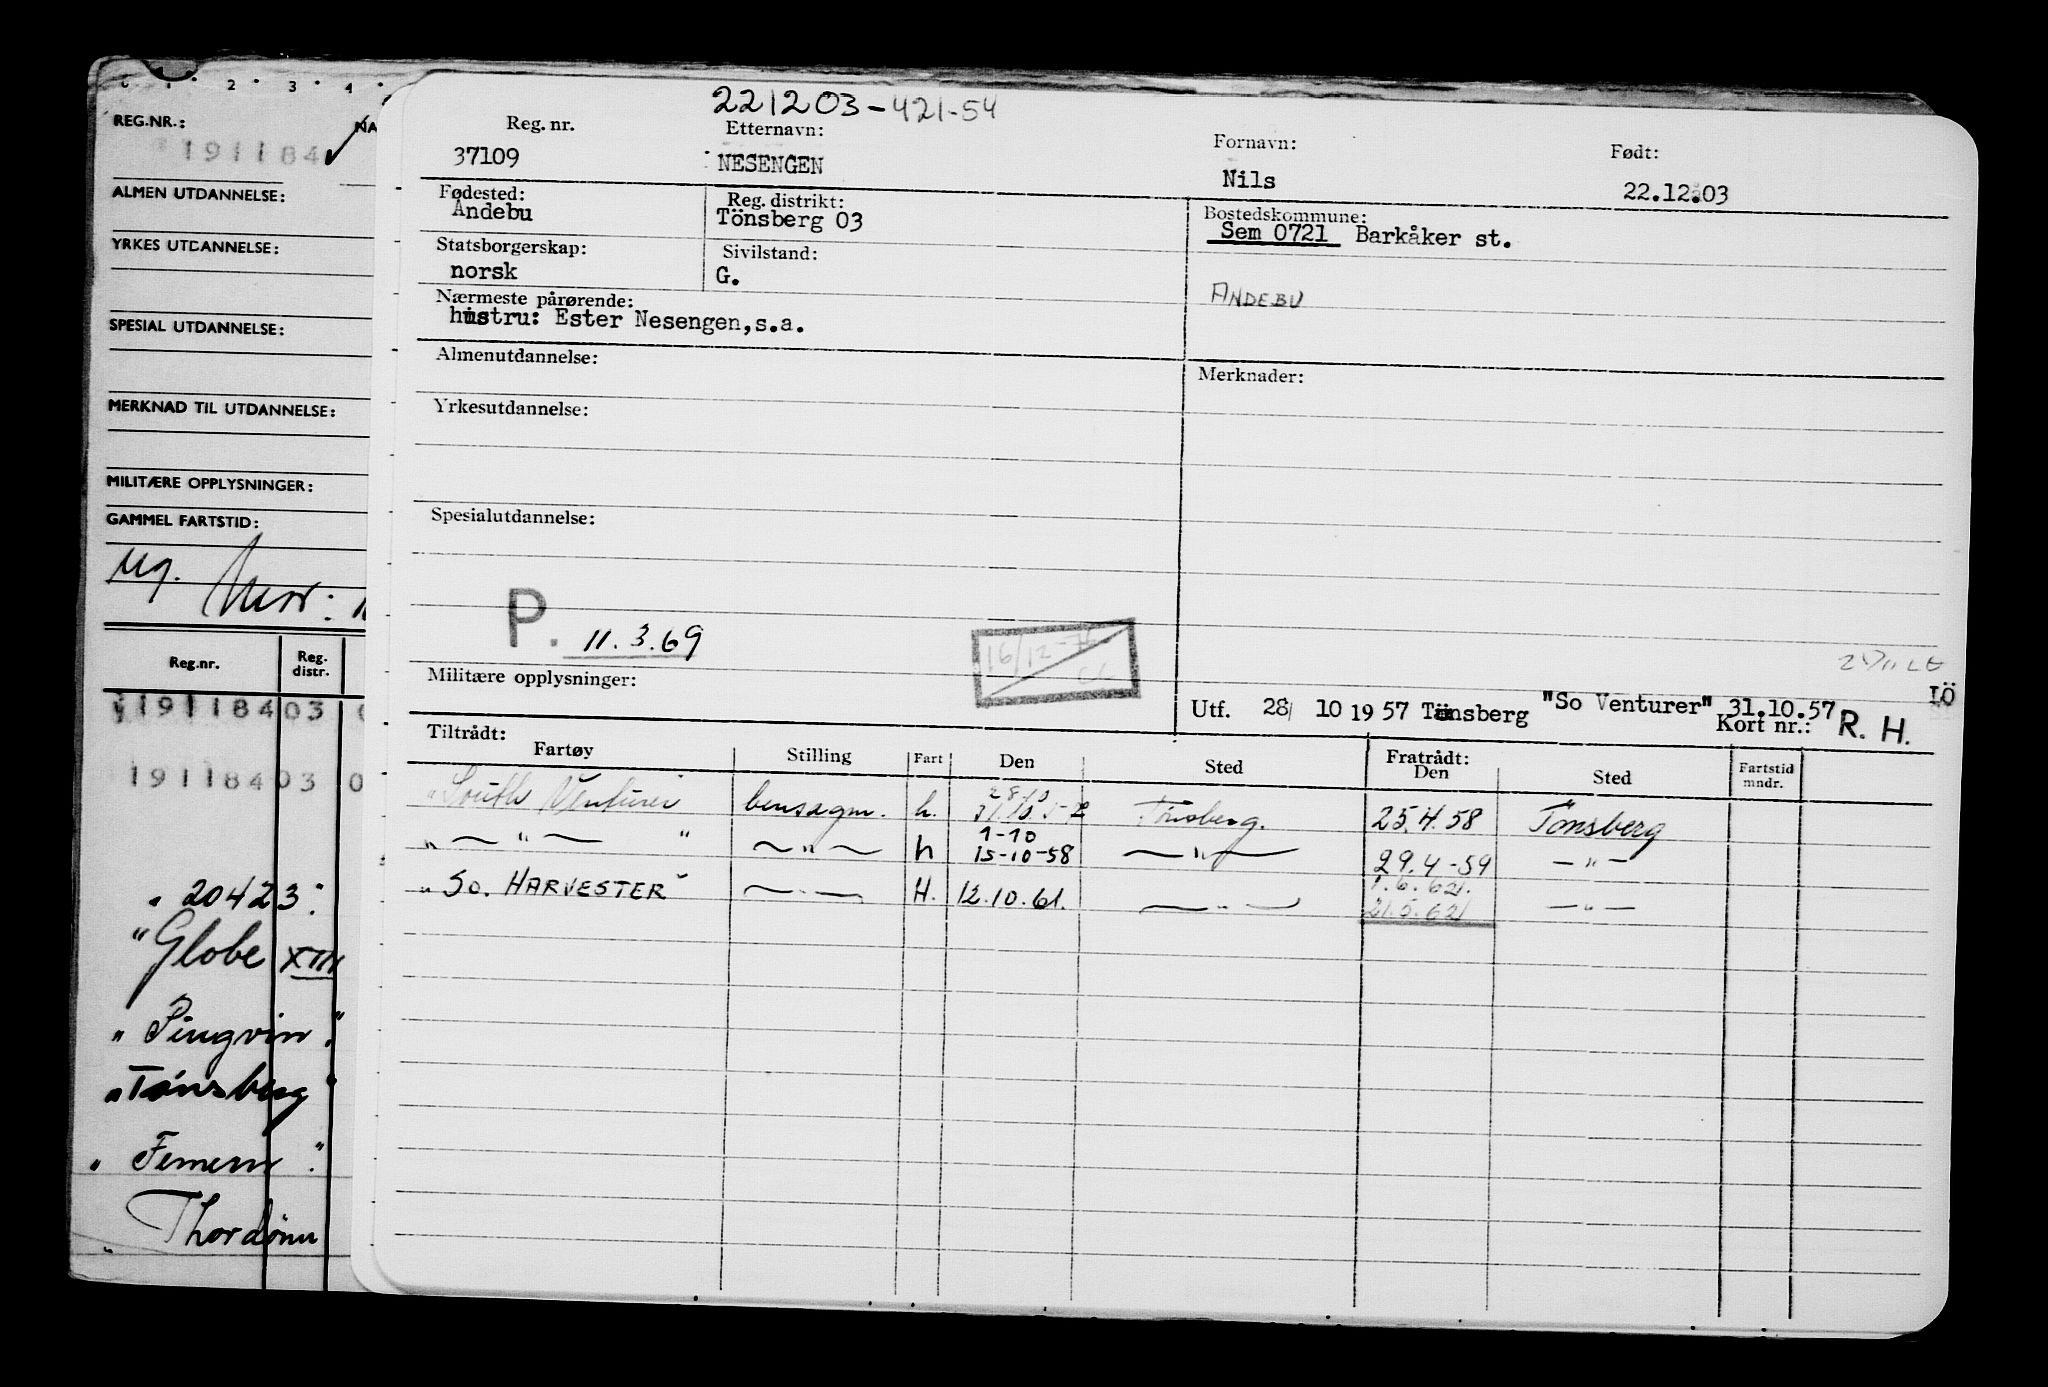 0 1 2 3 4
REG.NR.: NA
191184 ✓
ALMEN UTDANNELSE:
YRKES UTDANNELSE:
SPESIAL UTDANNELSE:
MERKNAD TIL UTDANNELSE:
MILITÆRE OPPLYSNINGER:
GAMMEL FARTSTID:
Reg.nr. Reg. distr.
191184 03 0
191184 03 0
" 20423"
"Globe XIII
"Pingvin"
"Tönsberg"
"Femern"
"Thordønn
221203-421-54
Reg. nr. Etternavn: Fornavn: Født:
37109 NESENGEN Nils 22.12.03
Fødested: Reg. distrikt: Bostedskommune:
Andebu Tönsberg 03 Sem 0721 Barkåker st.
Statsborgerskap: Sivilstand:
norsk G.
ANDEBU
Nærmeste pårørende:
hustru: Ester Nesengen,s.a.
Almenutdannelse: Merknader:
Yrkesutdannelse:
Spesialutdannelse:
P. 11.3.69
16/12-
Militære opplysninger:
IÖ
Utf. 28/ 10 1957 Tönsberg "So Venturer" 31.10.57
Kort nr.: R. H.
Tiltrådt: Fratrådt:
Fartøy Stilling Fart Den Sted Den Sted Fartstid mndr.
28.10
"South Venturer bensagm. h. 31.10.57 Tönsberg. 25.4.58 Tönsberg
1-10
" — " — " — " — h 15-10-58 — " — 29.4-59 — " —
1.6.62.
"So. HARVESTER" — " — H. 12.10.61. — " — 21.5.62 — " —